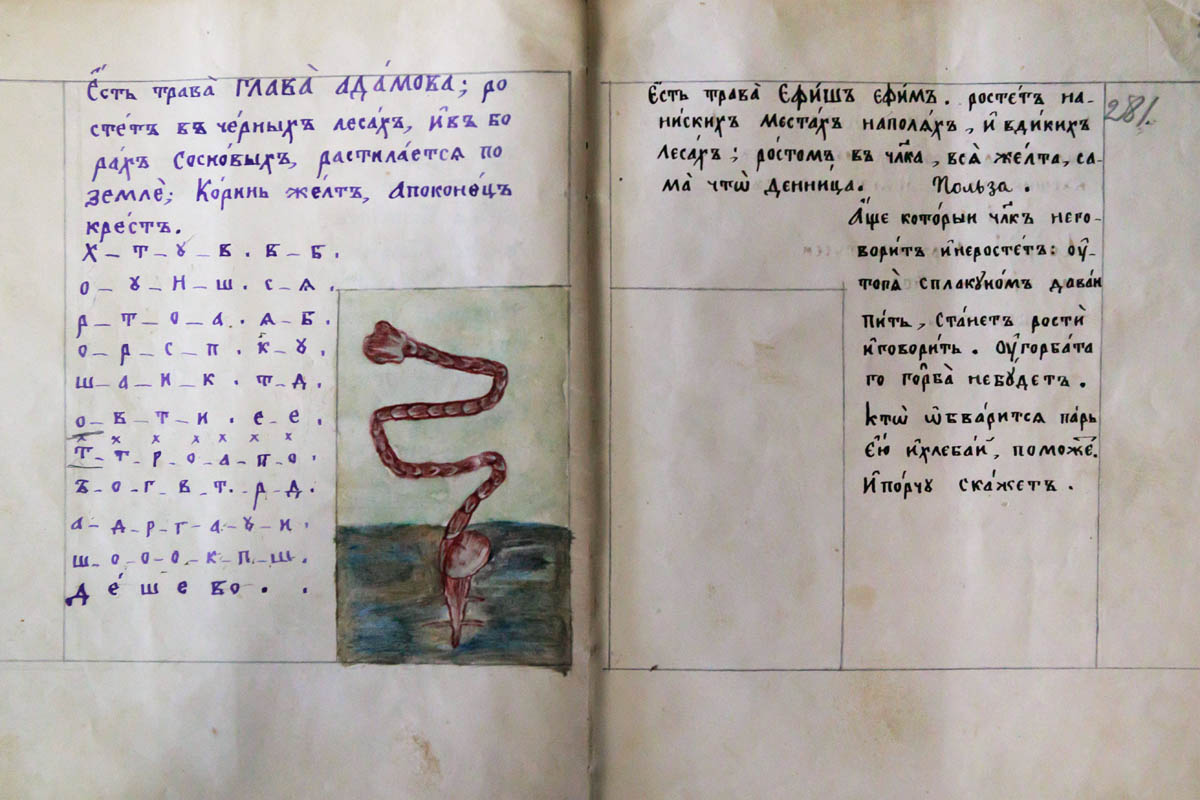 Е҆́сть трава̀ ГЛАВА̀ АДА́МОВА; ро
сте́тъ въ че́рныхъ леса́хъ, и҆въ бо
ра́хъ сосно́выхъ, растила́ется по
землѐ; Ко́ринь же́лтъ, апоконе́цъ
кре́стъ.
Х – т – ꙋ – в . в – б .
о – ꙋ – н – ш . с ѧ .
р – т – о – а . ѧ – б .
о – р – с – п . к – ꙋ .
ш – а – и – к . т д .
о – в – т – и . е – е .
х х х х х х х
т – т – р – о – а – п – о .
ъ – о – г – в – т . р – д .
а – д – р – г – а – ꙋ – и .
ш – о – о – о – к – п – ш .
де́шево . .
Е҆́сть трава̀ Е҆фи́шъ ефи́мъ. росте́тъ на-
ни́скихъ места́хъ напола́хъ, и҆ вди́кихъ
леса́хъ; ро́стомъ въ члк҃а, всѧ̀ же́лта, са-
ма̀ что̀ѡ денни́ца. Польза.
А҆́ще кото́рыи члк҃ъ него-
вори́тъ и҆неросте́тъ: оу҆-
топѧ̀ сплакуно́мъ дава́и
пи́ть, ста́нетъ ростѝ
и҆говори́ть. Оу҆горба́та
го го́рба̀ небу́детъ.
Ктѡ̀ ѡ҆бва́рится па́рь
е҆́ю и҆хлеба́й, помо́же.
И҆по́рчꙋ ска́жетъ.
281.